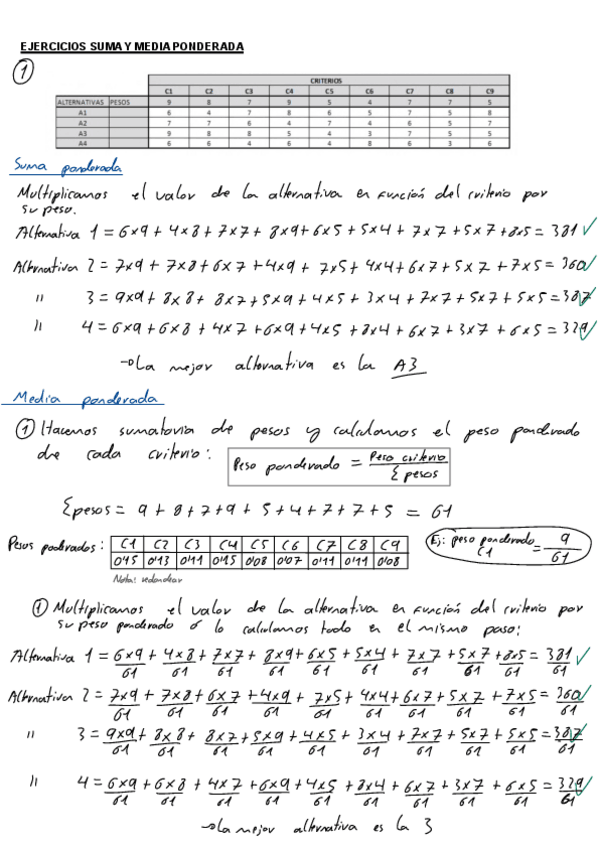 EJERCICIOS SUMA Y MEDIA PONDERADA
1
CRITERIOS
C1 C2 C3 C4 C5 C6 C7 C8 C9
ALTERNATIVAS PESOS 9 8 7 9 5 4 7 7 5
A1 6 4 7 8 6 5 7 5 8
A2 7 7 6 4 7 4 6 5 7
A3 9 8 8 5 4 3 7 5 5
A4 6 6 4 6 4 8 6 3 6
Suma ponderada
Multiplicamos el valor de la alternativa en función del criterio por
su peso.
Alternativa 1 = 6x9 + 4x8 + 7x7 + 8x9 + 6x5 + 5x4 + 7x7 + 5x7 + 8x5 = 381 ✓
Alternativa 2 = 7x9 + 7x8 + 6x7 + 4x9 + 7x5 + 4x4 + 6x7 + 5x7 + 7x5 = 360 ✓
" 3 = 9x9 + 8x8 + 8x7 + 5x9 + 4x5 + 3x4 + 7x7 + 5x7 + 5x5 = 387 ✓
" 4 = 6x9 + 6x8 + 4x7 + 6x9 + 4x5 + 8x4 + 6x7 + 3x7 + 6x5 = 329 ✓
→ La mejor alternativa es la A3
Media ponderada
1 Hacemos sumatoria de pesos y calculamos el peso ponderado
de cada criterio: Peso ponderado = Peso criterio / Σ pesos
Σpesos = 9 + 8 + 7 + 9 + 5 + 4 + 7 + 7 + 5 = 61
Pesos poderados: C1 C2 C3 C4 C5 C6 C7 C8 C9
0'15 0'13 0'11 0'15 0'08 0'07 0'11 0'11 0'08
Ej: peso ponderado C1 = 9/61
Nota: redondear
1 Multiplicamos el valor de la alternativa en función del criterio por
su peso ponderado o lo calculamos todo en el mismo paso:
Alternativa 1 = 6x9/61 + 4x8/61 + 7x7/61 + 8x9/61 + 6x5/61 + 5x4/61 + 7x7/61 + 5x7/61 + 8x5/61 = 381/61 ✓
Alternativa 2 = 7x9/61 + 7x8/61 + 6x7/61 + 4x9/61 + 7x5/61 + 4x4/61 + 6x7/61 + 5x7/61 + 7x5/61 = 360/61 ✓
" 3 = 9x9/61 + 8x8/61 + 8x7/61 + 5x9/61 + 4x5/61 + 3x4/61 + 7x7/61 + 5x7/61 + 5x5/61 = 387/61 ✓
" 4 = 6x9/61 + 6x8/61 + 4x7/61 + 6x9/61 + 4x5/61 + 8x4/61 + 6x7/61 + 3x7/61 + 6x5/61 = 329/61 ✓
→ La mejor alternativa es la 3